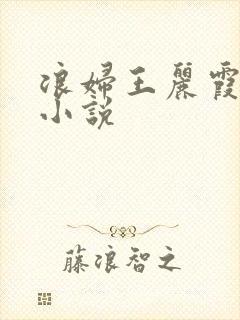 浪婦王麗霞
小說
藤浪智之